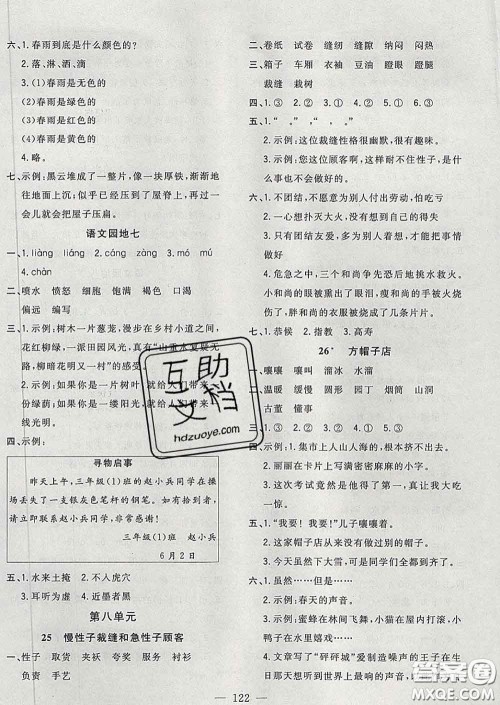 六、1. 春雨到底是什么颜色的
2. 落、淋、洒、滴
3. (1)春雨是无色的
(2)春雨是绿色的
(3)春雨是红色的
(4)春雨是黄色的
4. 略。
七、示例：黑云堆成了一整片，像一块厚铁，渐渐地
往地面上沉；似乎已经挨到了屋脊上，再过一
会儿就会把屋子压扁。
语文园地七
一、1. liàng liáng 2. cáng zàng 3. mó mú
4. chàn
二、喷水 愤怒 细胞 饱满 褐色 口渴
偏远 编写
三、1. 示例：树木一片葱茏，漫步在乡间小道，
花红柳绿，一派田园风光，真有“山重水复疑无
路，柳暗花明又一村”的意境。
2. 示例：我愿意是一片绿叶，给人们带来一
份绿荫；我愿意是一缕阳光，给人们带来一
片光明。
四、示例：
寻物启事
昨天上午，三年级(1)班的赵小兵同学在操
场丢失了一支银灰色笔杆的钢笔。如有拾到者，
请立即联系赵小兵同学，非常感谢！
三年级(1)班 赵小兵
6月2日
五、1. 水来土掩 2. 不入虎穴
3. 耳听为虚 4. 近墨者黑
第八单元
25 慢性子裁缝和急性子顾客
一、性子 取货 夹袄 夸奖 服务 衬衫
负责 手艺
二、卷纸 试卷 缝纫 缝隙 纳闷 闷热
三、箱子 车厢 衣袖 豆油 瞪眼 登山
裁缝 栽树
四、1. ③ 2. ② 3. ④ 4. ② 5. ① 6. ③
五、1. “ 。” ， “ 。”
2. 示例：这位裁缝性格很幽默，很有趣味。
3. 示例：“您这位顾客啊，真是性急得
不得了！”
六、1. 不团结，不愿意为别人付出劳动，怕吃亏
2. 一心想扑灭大火，没想到自己和别人
3. 示例：只要大家团结协作，就能把事情
做好
4. 危急之中，三个和尚争先恐后地挑水救火。
小和尚的眼泪变成了喜悦，瘦和尚的手被火烧
伤了，胖和尚的衣服被火烧了几条片。
七、1. 恭候 2. 指教 3. 高寿
26* 方帽子店
一、嚷嚷 嚷叫 溜冰 溜溜
二、温暖 缓慢 圆形 园丁 烟筒 山洞
古董 懂事
三、1. 示例：集市上人山人海的，根本挤不出去。
2. 丽丽在卡片上写满密密麻麻的小字。
3. 这次考试竟然得了最后一个！
四、1. “我要！我要！”儿子嚷嚷着。
2. 这家帽子店以前生意很好。
3. 今天虽然下大雪，可是我们全班没有一
个人迟到。
六、1. 虽然……但是……
2. 示例：春天的声音。
3. 示例：蜜蜂在林间飞舞，小猫在屋檐打盹，小
鸭子在水里嬉戏。
4. 文章写了“砰砰城”爱制造噪声的王子在生
日那天听到世界上最美丽的声音——大自然的
122
互助文档
hdzuoye.com
答案圈
MXQE.COM